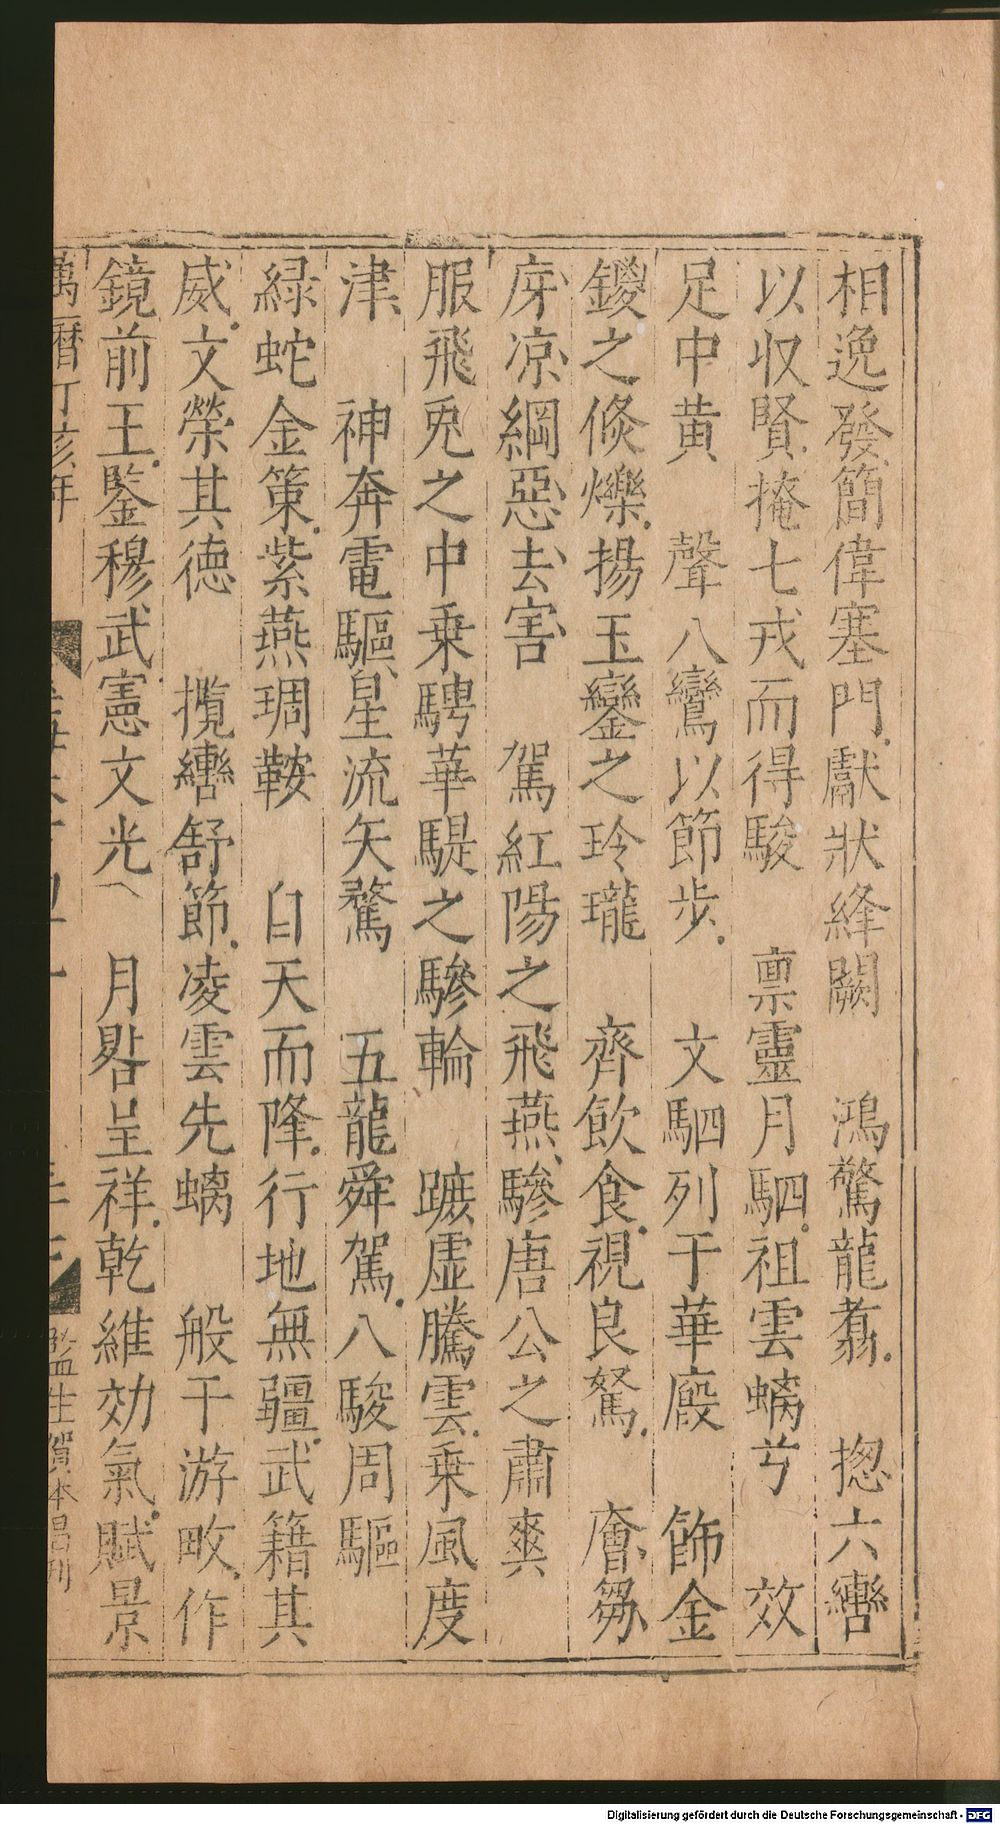 相逸發簡偉塞門獻狀絳闕　鴻驚龍翥　揔六轡
以收賢掩七戎而得駿　禀靈月駟祖雲螭兮　效
足中黄　聲八鸞以節步　文駟列于華廄　飾金
鍐之倏爍揚玉鑾之玲瓏　齊飲食視良駑　廥芻
庌凉綱惡去害　駕紅陽之飛燕驂唐公之肅爽
服飛兎之中乗騁華騠之驂輪　蹠虚騰雲乗風度
津　神奔電驅星流矢騖　五龍舜駕八駿周驅
緑蛇金策紫燕琱鞍　自天而降行地無疆武籍其
威文榮其徳　攬轡舒節凌雲先螭　般于游畋作
鏡前王鑒穆武憲文光　月晷呈祥乾維効氣賦景
萬曆丁亥年
監生賀本昌刊
Digitalisierung gefördert durch die Deutsche Forschungsgemeinschaft - DFG